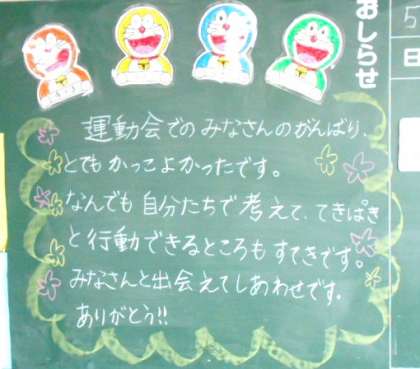 おしらせ
5
日
運動会でのみなさんのがんばり、
とてもかっこよかったです。
なんでも自分たちで考えて、てきぱき
と行動できるところもすてきです。
みなさんと出会えてしあわせです。
ありがとう!!